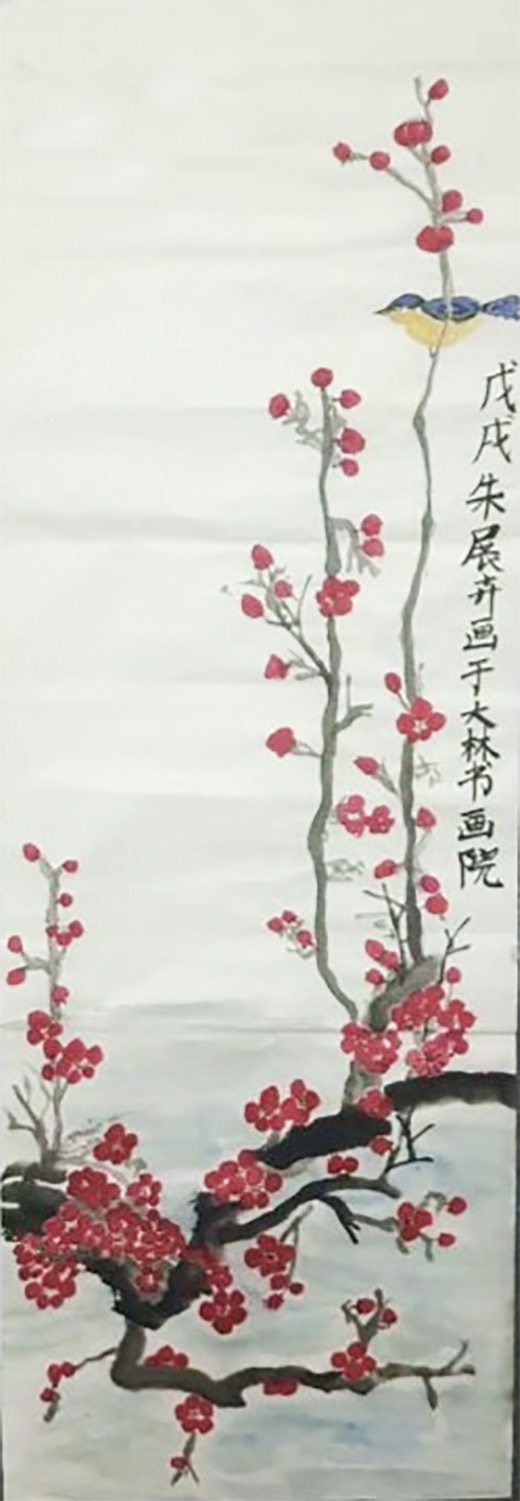 戊戌朱展卉画于大林书画院